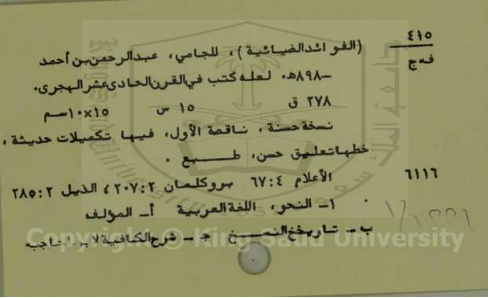 ٤١٥
ف ج
(الفوائد الضيائية)، للجامي، عبدالرحمن بن أحمد
-٨٩٨ه. لعله كتب في القرن الحادى عشر الهجرى.
٢٧٨ ق ١٥ س ١٥×١٠سم
نسخة حسنة، ناقصة الأول، فيها تكميلات حديثة،
خطها تعليق حسن، طبع.
٦١١٦
الأعلام ٦٧:٤ بروكلمان ٢٠٧:٢، الذيل ٢٨٥:٢
١- النحو، اللغة العربية أ- المؤلف
ب- تاريخ النسخ ج- شرح الكافية لابن الحاجب
Copyright © King Saud University